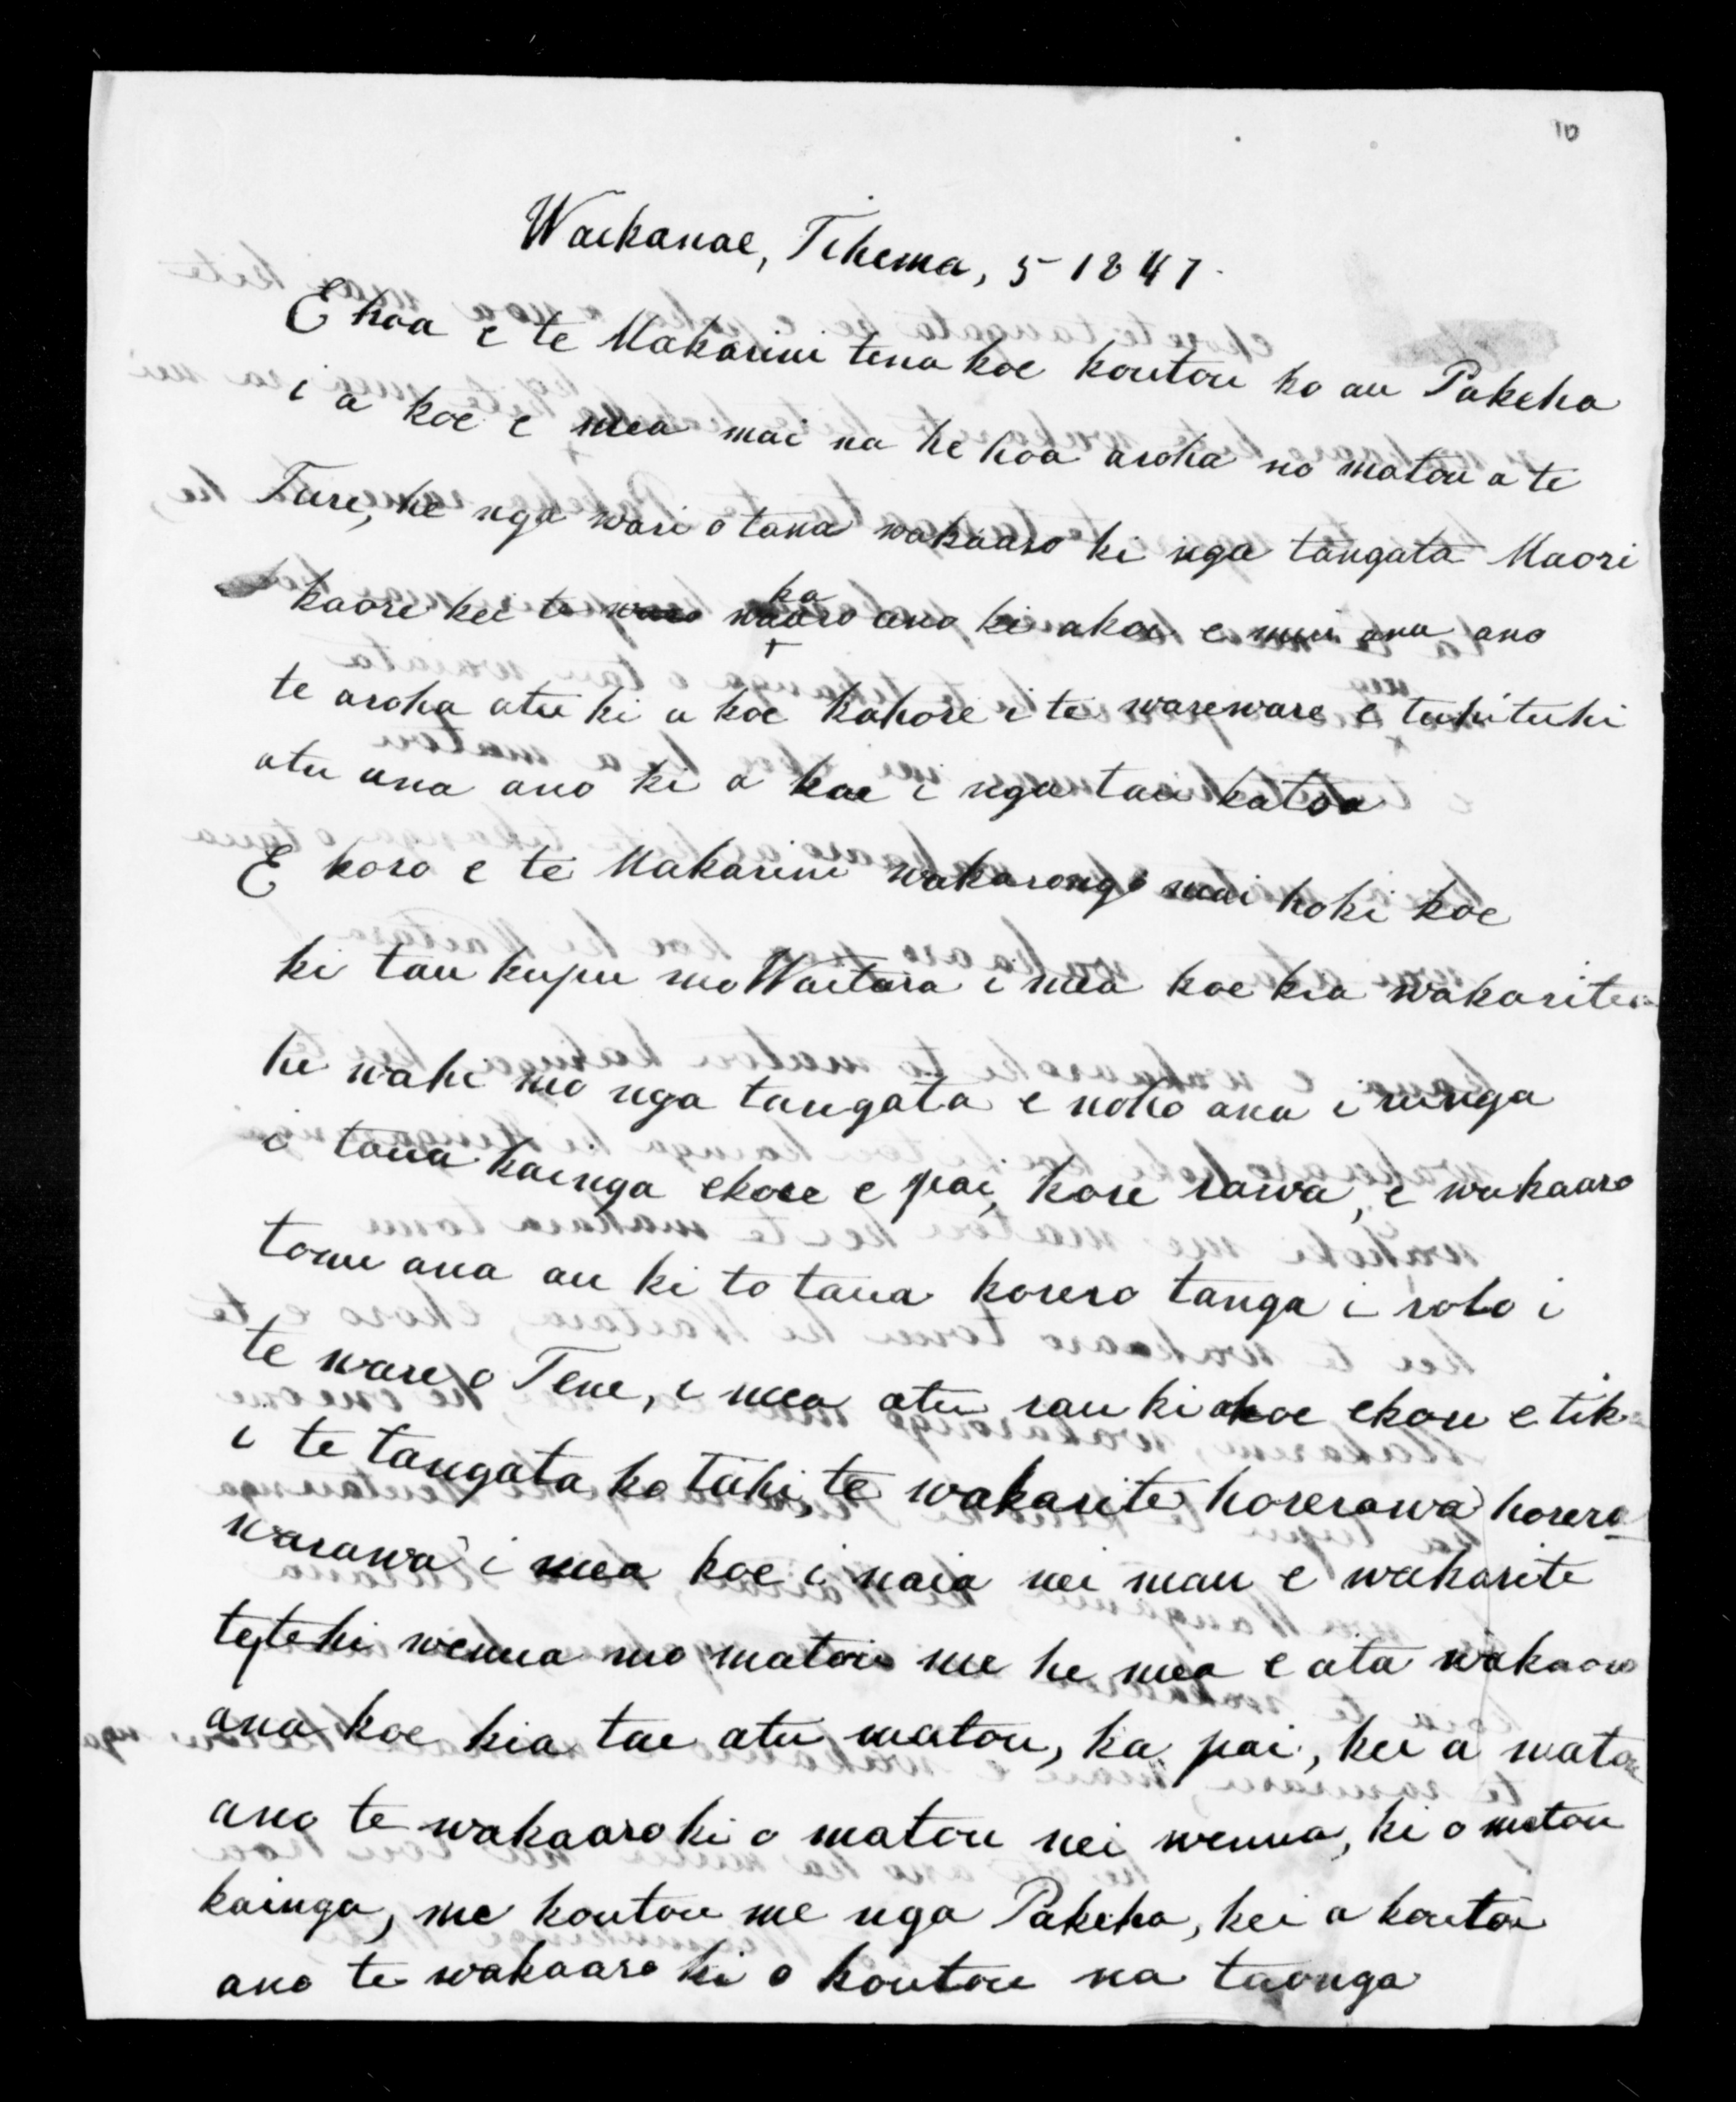 10
Waikanae, Tihema, 5 1847.
E hoa e te Makarini tena koe koutou ko au Pakeha
i a koe e mea mai na he hoa aroha no matou a te
Ture, he nga wari o tana wakaaro ki nga tangata Maori
kaore kei te waro wakaaro ano ki akoe e mui ana ano
te aroha atu ki a koe kahore i te wareware e tuhituhi
atu ana ano ki a koe i nga tau katoa
E koro e te Makarini wakarongo mai hoki koe
ki tau kupu mo Waitara i mea koe kia wakaritea
he wahi mo nga tangata e noho ana i runga
i taua kainga ekore e pai, kore rawa, e wakaaro
tonu ana au ki to taua korero tanga i roto i
te ware o Tene, i mea atu rau ki akoe ekore e tika
i te tangata ko tahi, te wakarite horerawa horera
warawa i mea koe i naia nei mau e wakarite
tetehi wenua mo matou me he mea e ata wakaaro
ana koe kia tae atu matou, ka pai, kei a matou
ano te wakaaro ki o matou nei wenua, ki o matou
kainga, me koutou me nga Pakeha, kei a koutou
ano te wakaaro ki o koutou na taonga